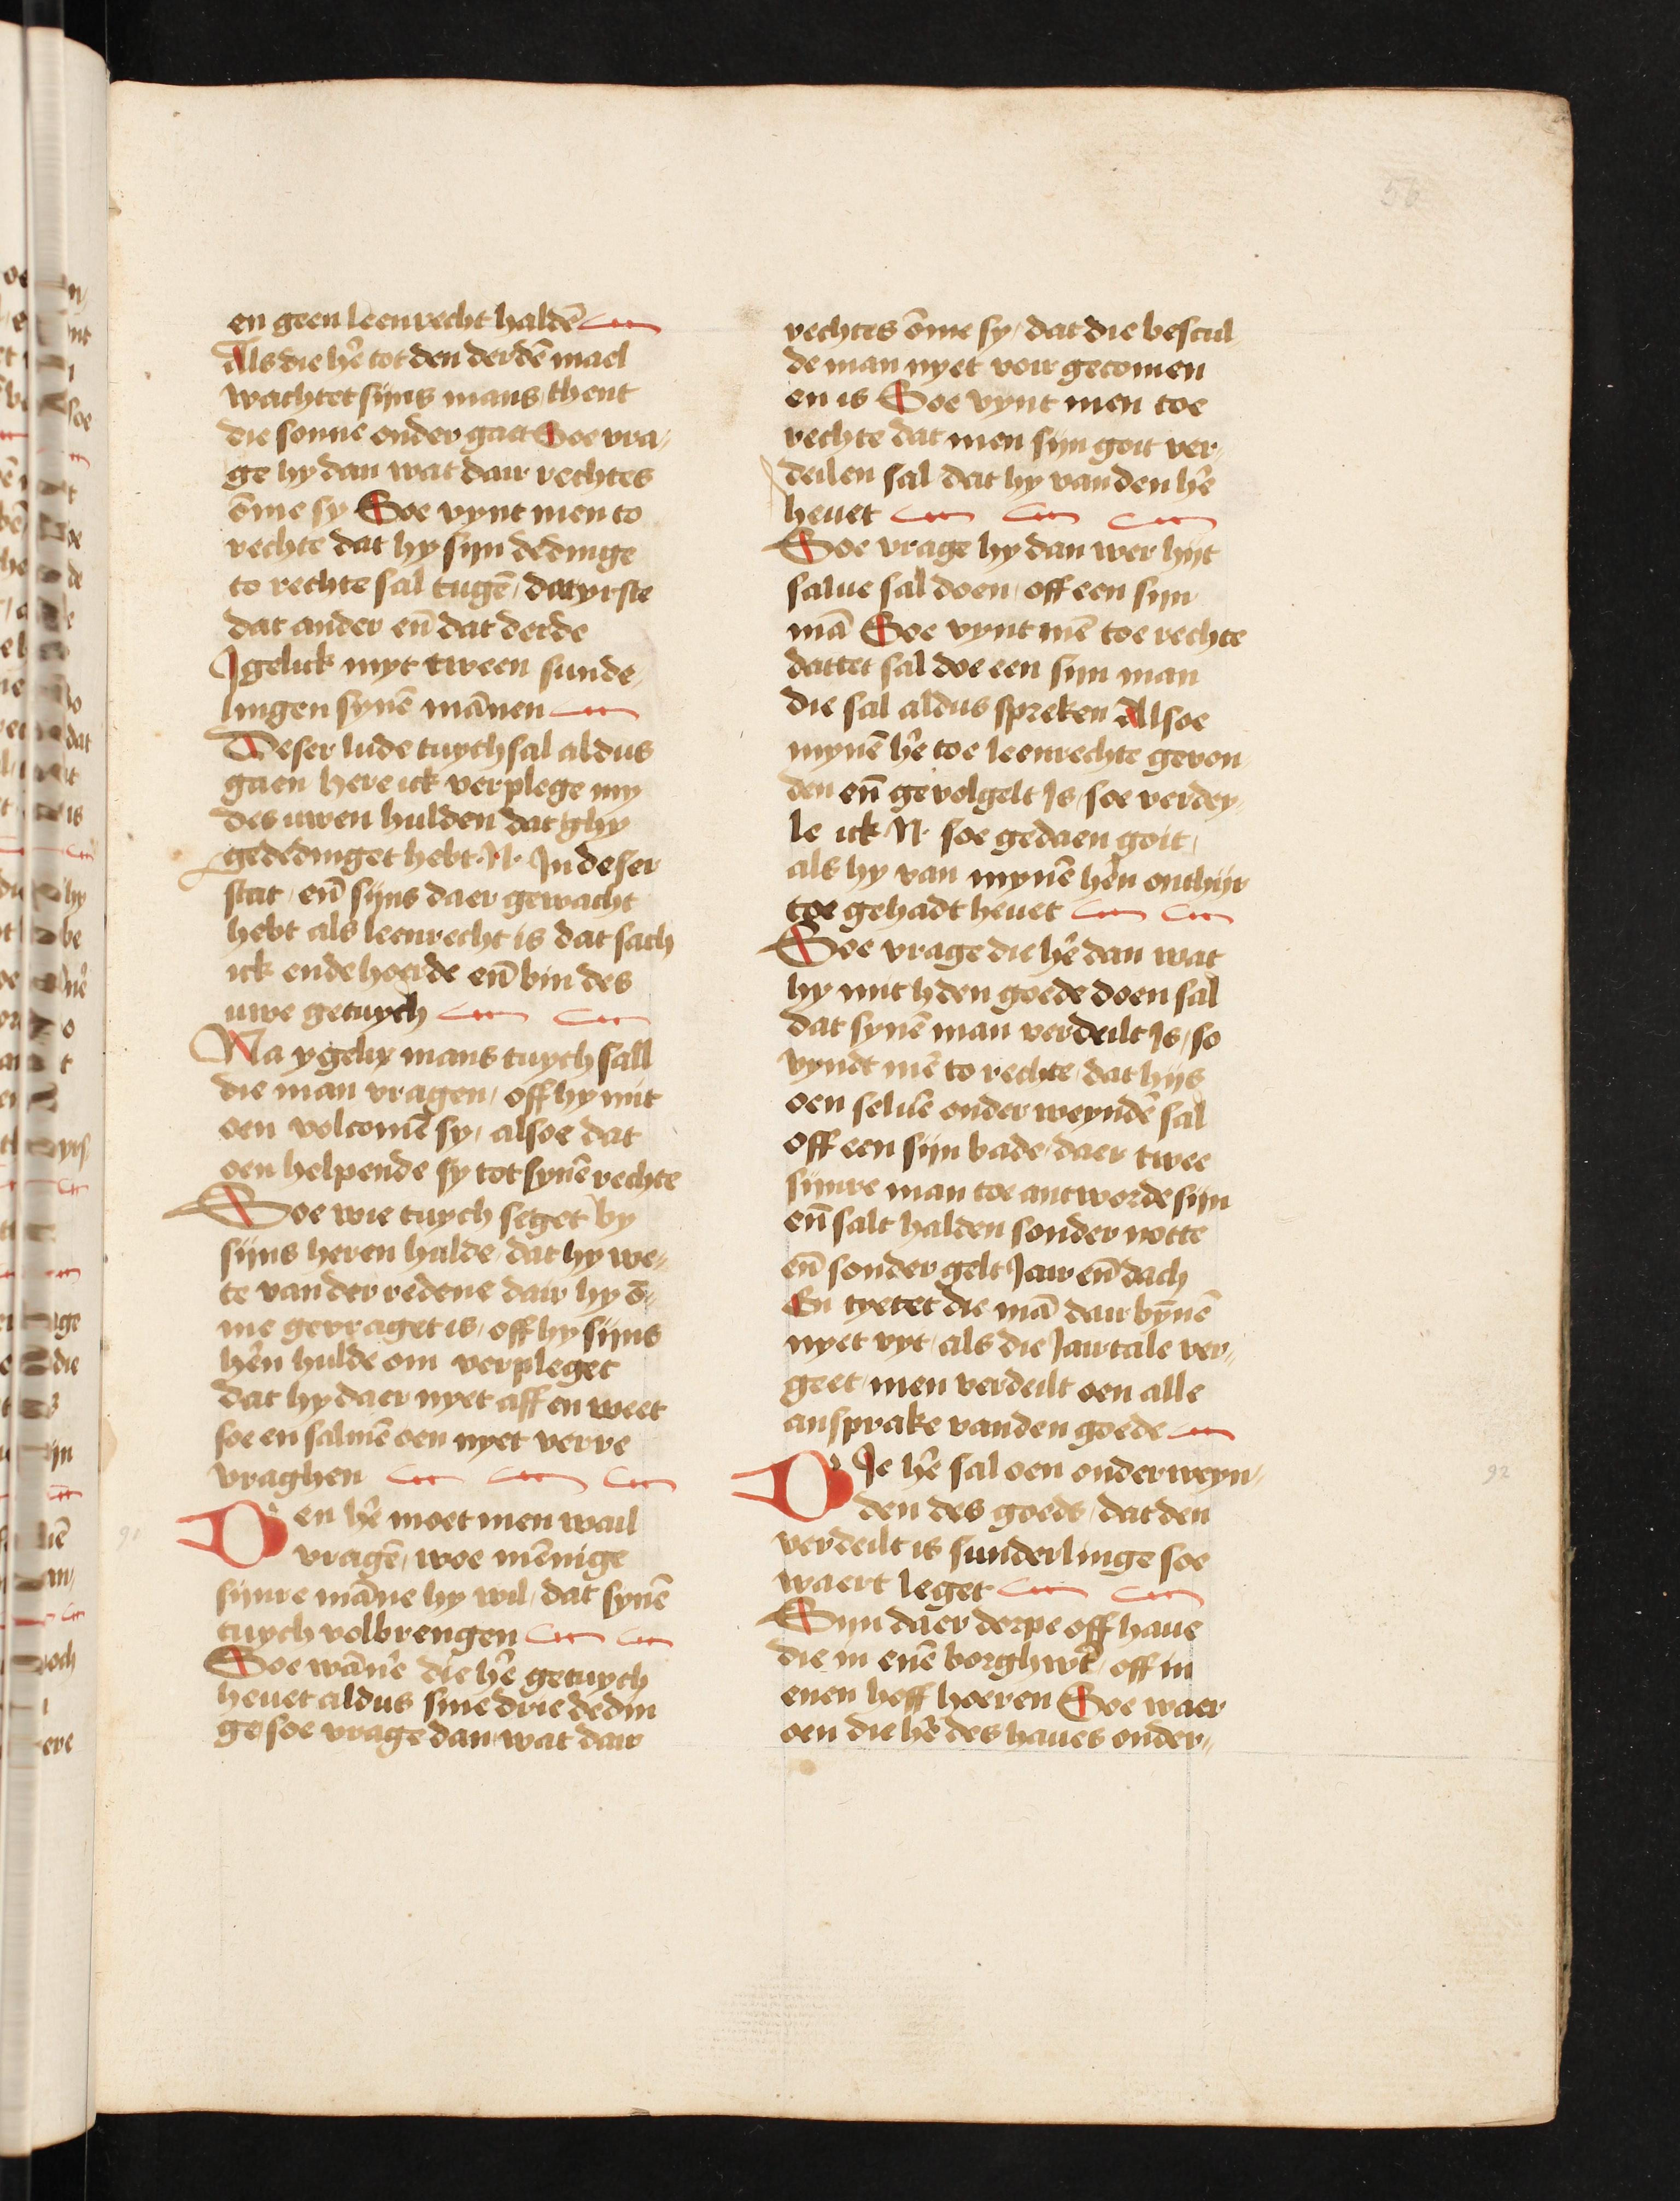 56
en geen leenrecht haldē
Als die hē tot den derdē mael
wachtet sijns mans / thent
die sonne onder gaet Soe vra⸗
ge hy dan wat dair rechtes
ōme sy Soe vynt men to
rechte dat hy sijn dedinge
to rechte sal tugē / dat yrste
dat ander eñ dat derde
Igelick myt tween sunde⸗
lingen synē mānen
Deser lude tuych sal aldus
gaen here ick verplege my
des uwen hulden dat ghy
gededinget hebt ·N· In deser
stat / eñ sijns daer gewacht
hebt als leenrecht is dat sach
ick ende hoerde eñ bin des
uwe getuych
Na ygelix mans tuych sall
die man vragen / off hy mit
oen volcomē sy / alsoe dat
oen helpende sy tot synē rechte
Soe wie tuych seget by
sijns heren hulde / dat hy we⸗
te van der redene dair hy ō⸗
me gevraget is / off hy sijns
hēn hulde om verpleget
dat hy daer nyet aff en weet
soe en salmē oen nyet verre
vraghen
91
Den hē moet men wail
vragē / woe mēnige
sijnre māne hy wil / dat synē
tuych volbrengen
Soe wānē die hē getuych
heuet aldus sine drie dedin
ge / soe vrage dan / wat dair
rechtes ōme sy / dat die bescul⸗
de man nyet voir gecomen
en is Soe vynt men toe
rechte dat men sijn goit ver⸗
deilen sal dat hy van den hē
heuet
Soe vrage hy dan wer hijt
salue sal doen / off een sijn
mā Soe vynt mē toe rechte
dattet sal doe een sijn man
die sal aldus spreken Allsoe
mynē hē toe leenrechte gevon⸗
den eñ gevolgelt Is / soe verdey⸗
le ick ·N· soe gedaen goit /
als hy van mynē hēn onthijr
toe gehadt heuet
Soe vrage die hē dan wat
hy mit hden goede doen sal
dat synē man verdeilt Is / so
vyndt mē to rechte / dat hijs
oen seluē onder weyndē sal
off een sijn bade / daer twee
sijnre man toe antworde sijn
eñ salt halden sonder notte
eñ sonder gelt Jair eñ dach
En tyetet die mā dair bȳnē
nyet vyt / als die Jairtale ver⸗
geet / men verdeilt oen alle
ansprake van den goede
92
DIe hē sal oen onderweyn⸗
den des goeds / dat den
verdeilt is sunderlinge soe
waert leget
Sijn daer derpe off haue
die in enē borghwē / off in
enen hoff hoeren Soe waer
oen die hē des haues onder⸗